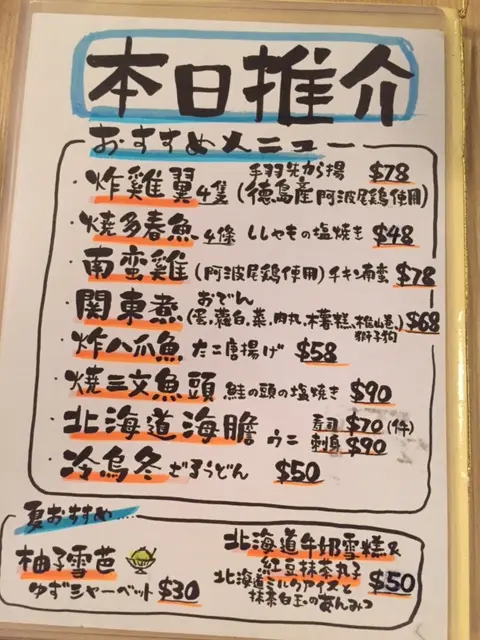 本日推介
おすすめメニュー
・炸雞翼4隻 手羽先から揚 $78
(徳島産阿波尾鶏使用)
・燒多春魚4條 ししゃもの塩焼き $48
・南蛮雞(阿波尾鶏使用)チキン南蛮 $78
・関東煮 おでん $68
(蛋,蘿白,菜,肉丸,
・炸八爪魚 たこ唐揚げ $58
・焼三文魚頭 鮭の頭の塩焼き $90
・北海道海膽 ウニ 寿司 $70(件)
刺身 $90
・冷烏冬 ざるうどん $50
夏おすすめ
柚子雪芭
ゆずシャーベット $30
北海道牛奶雪糕&
紅豆抹茶丸子 $50
北海道ミルクアイスと
抹茶白玉のあんみつ